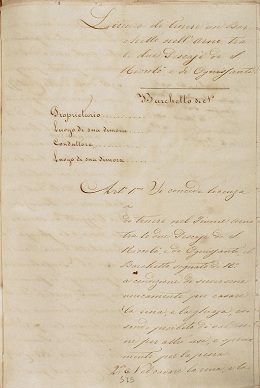 Licenza di tenere un Bar
chetto nell'Arno tra
le due Pescaje di S.
Niccolò e di Ognissanti
Barchetto di N°
Proprietario
Luogo di sua dimora
Conduttore
Luogo di sua dimora
Art. 1° Si concede licenza
a
di tenere nel Fiume Arno
tra le due Pescaje di S.
Niccolò, e di Ognissanti il
Barchetto segnato di N.
a condizione di servirsene
unicamente per cavare
la rena, e la ghiaja, es
sendo proibito di usarne
per altro uso, e
mente per la pesca
2° Nel cavare la rena, e la
515